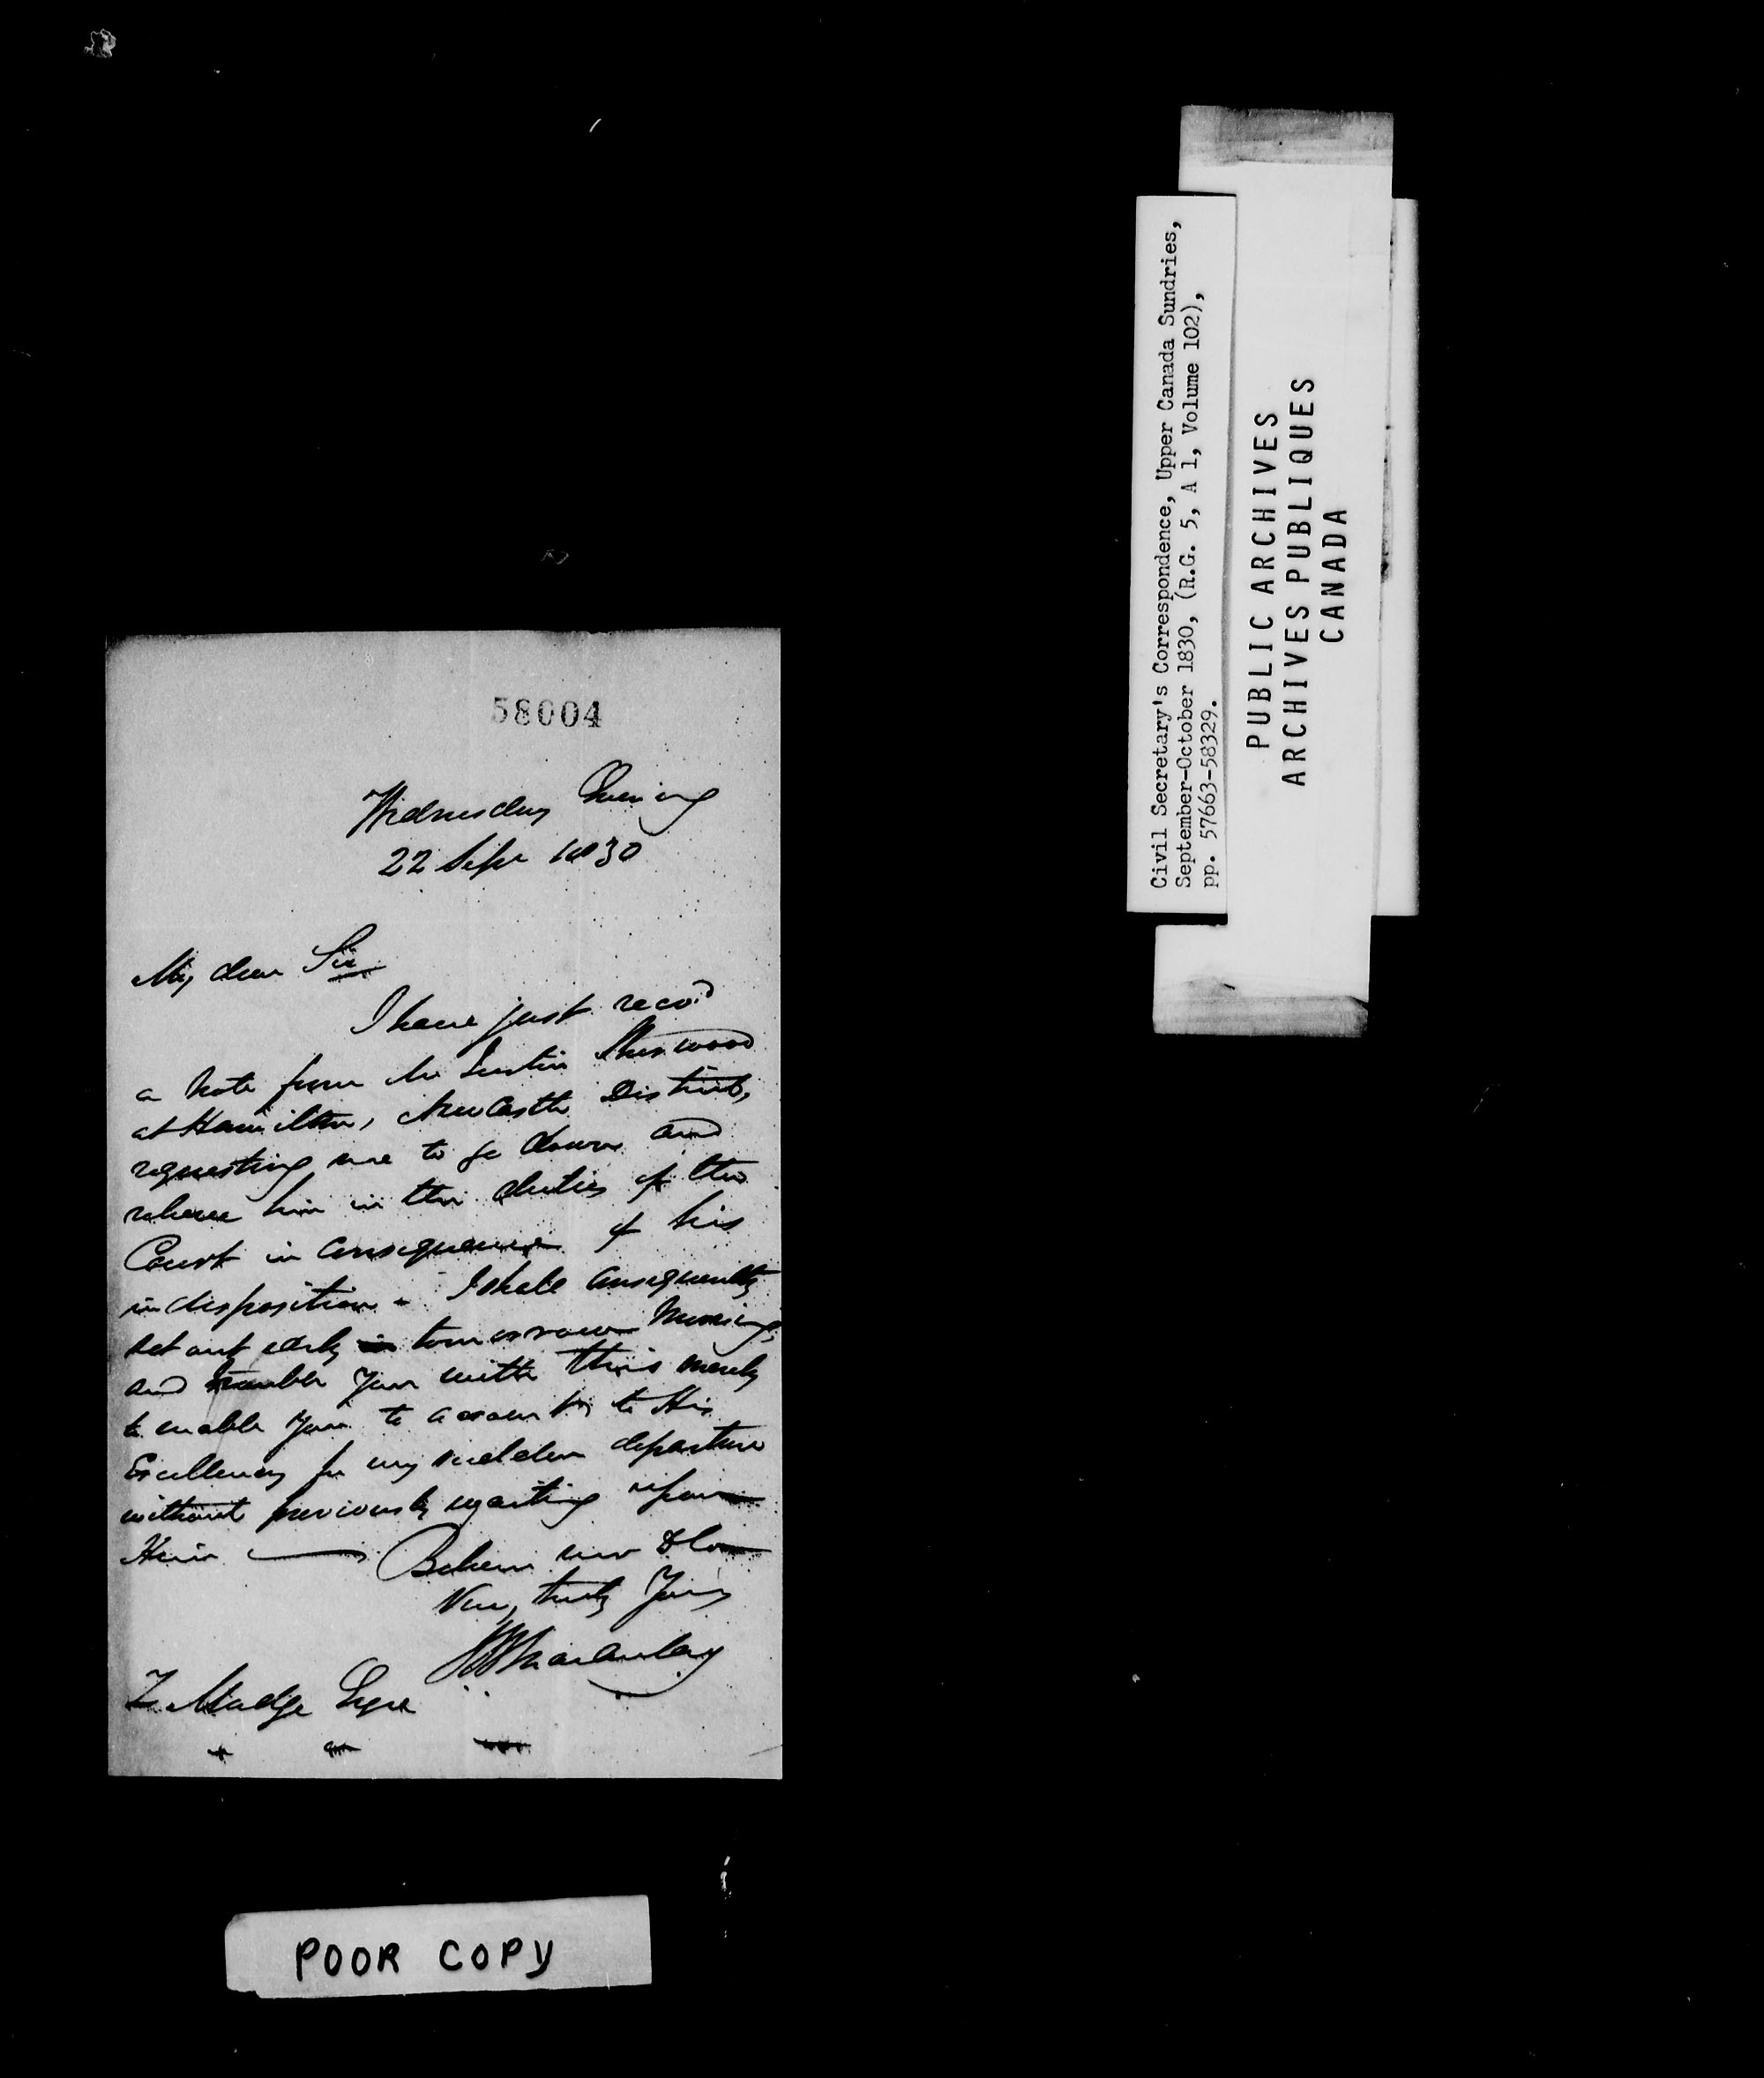 58004
Wednesday Evening
22 Sepr 1830
My dear Sir
I have just recd
a Note from Mr Justice Sherwood
at Hamilton, NewCastle District,
requesting me to go down and
relieve him in the duties of the
Court in consequence of his
indisposition - I shall consequently
set out early in tomorrow Morning,
and trouble you with this merely
to enable you to account to His
Excellency for my sudden departure
without previously waiting upon
Him
Believe me &c
Very truly Yours
JB Macaulay
Z Mudge Esqre
POOR COPY
Civil Secretary's Correspondence, Upper Canada Sundries,
September-October 1830, (R.G. 5, A 1, Volume 102),
pp. 57663-58329.
PUBLIC ARCHIVES
ARCHIVES PUBLIQUES
CANADA